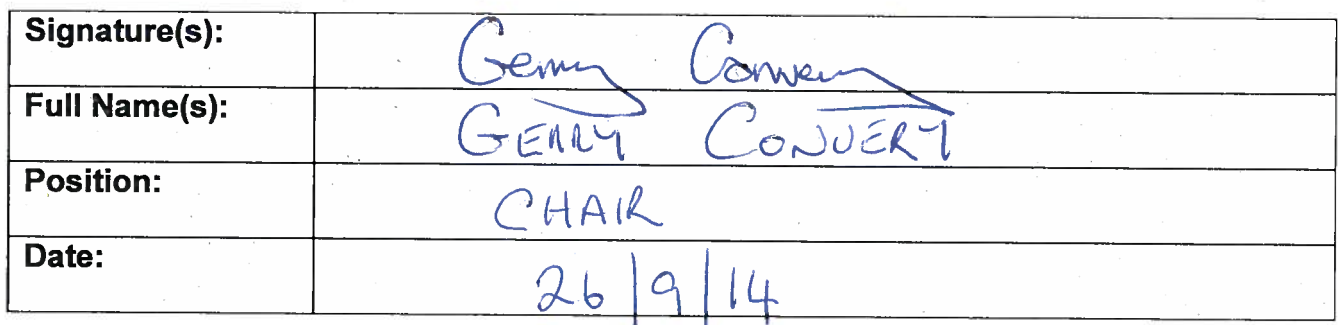 Signature(s): Gerry Convery
Full Name(s): GERRY CONVERY
Position: CHAIR
Date: 26/9/14